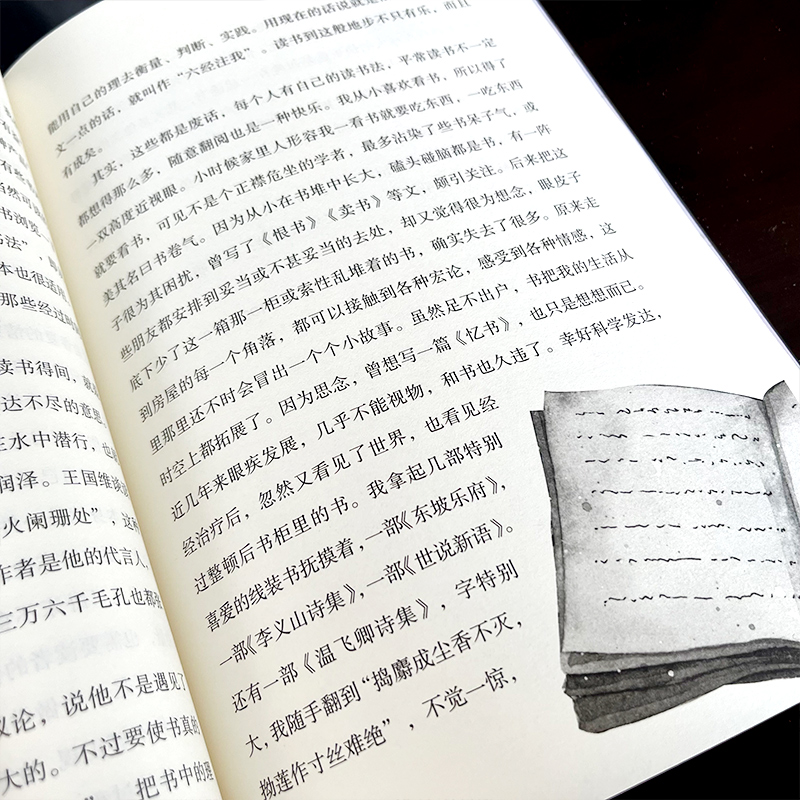 有些
书浏览
书法”，
本也很适
那些经过
读书得间，
达不尽的意思
在水中潜行，也
润泽。王国维
火阑珊处”，这
作者是他的代言人
三万六千毛孔也都
议论，说他不是遇见了
大的。不过要使书真的
”，把书中的理
能用自己的理去衡量、判断、实践。用现在的话说就是
文一点的话，就叫作“六经注我”。读书到这般地步不只有乐，而且
有成矣。
其实，这些都是废话，每个人有自己的读书法，平常读书不一定
都想得那么多，随意翻阅也是一种快乐。我从小喜欢看书，所以得了
一双高度近视眼。小时候家里人形容我一看书就要吃东西，一吃东西
就要看书，可见不是个正襟危坐的学者，最多沾染了些书呆子气，或
美其名曰书卷气。因为从小在书堆中长大，磕头碰脑都是书，有一阵
子很为其困扰，曾写了《恨书》《卖书》等文，颇引关注。后来把这
些朋友都安排到妥当或不甚妥当的去处，却又觉得很为想念，眼皮子
底下少了这一箱那一柜或索性乱堆着的书，确实失去了很多。原来走
到房屋的每一个角落，都可以接触到各种宏论，感受到各种情感，这
里那里还不时会冒出一个个小故事。虽然足不出户，书把我的生活从
时空上都拓展了。因为思念，曾想写一篇《忆书》，也只是想想而已。
近几年来眼疾发展，几乎不能视物，和书也久违了。幸好科学发达，
经治疗后，忽然又看见了世界，也看见经
过整顿后书柜里的书。我拿起几部特别
喜爱的线装书抚摸着，一部《东坡乐府》，
一部《李义山诗集》，一部《世说新语》。
还有一部《温飞卿诗集》，字特别
大，我随手翻到“捣麝成尘香不灭，
拗莲作寸丝难绝”，不觉一惊，